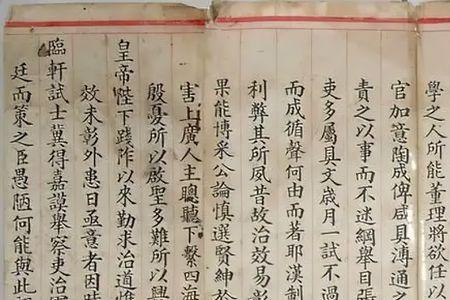 學之人所能董理將欲任以
官加意陶成俾咸具溥通
責之以事而不迷綱舉目張
吏多屬具文歲月一試不過
而成循聲何由而著耶漢制
利弊其所夙昔故治效易彰
果能博采公論慎選賢紳於
害上廣人主聰聽下繫四海
殷憂所以啟聖多難所以興
皇帝陛下踐阼以來勤求治道惟
效未彰外患日亟意者因時
臨軒試士冀得嘉謨舉察吏治軍
廷而策之臣愚陋何能與此